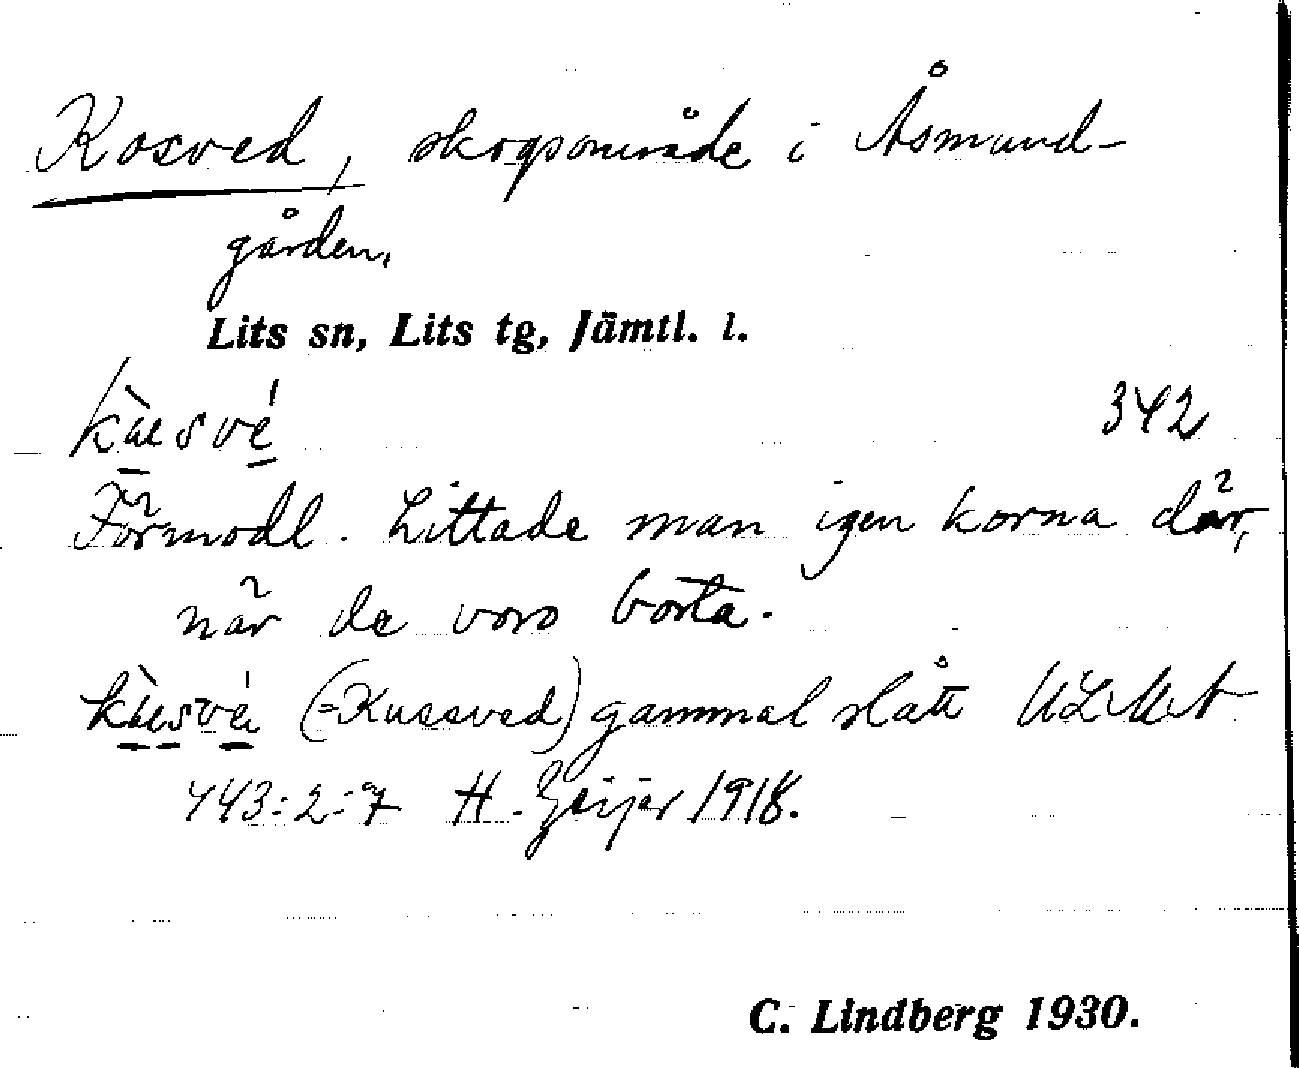 Kosved, skogsområde i Åsmund-
gården.
Lits sn, Lits tg, Jämtl. l.
kùsvé
342
Förmodl. hittade man igen korna där,
när de voro borta.
kùsvé (=Kussved) gammal slått ULMA
443:2:7 H. Geijer 1918.
C. Lindberg 1930.